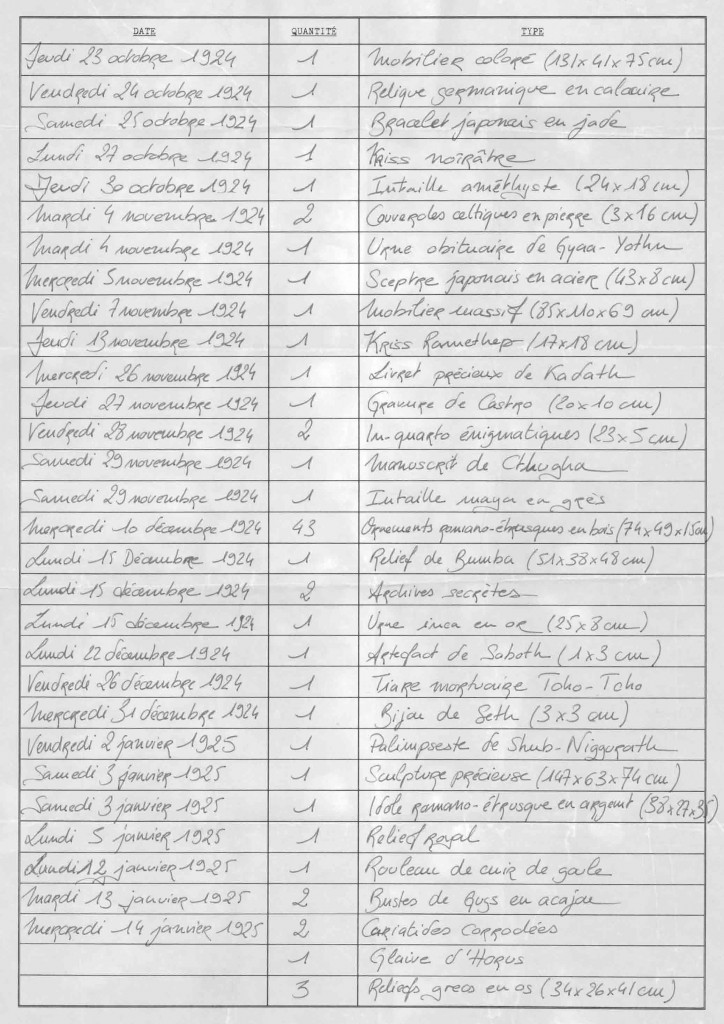 DATE QUANTITÉ TYPE
Jeudi 23 octobre 1924 1 Mobilier coloré (131x41x75cm)
Vendredi 24 octobre 1924 1 Relique germanique en calcaire
Samedi 25 octobre 1924 1 Bracelet japonais en jade
Lundi 27 octobre 1924 1 Kriss noirâtre
Jeudi 30 octobre 1924 1 Intaille améthyste (24x18cm)
Mardi 4 novembre 1924 2 Couvercles celtiques en pierre (3x16cm)
Mardi 4 novembre 1924 1 Urne obituaire de Gyaa-Yothn
Mercredi 5 novembre 1924 1 Sceptre japonais en acier (43x8cm)
Vendredi 7 novembre 1924 1 Mobilier massif (85x110x69 cm)
Jeudi 13 novembre 1924 1 Kriss Rannethep (17x18cm)
Mercredi 26 novembre 1924 1 Livret précieux de Kadath
Jeudi 27 novembre 1924 1 Gravure de Castro (20x10cm)
Vendredi 28 novembre 1924 2 In-quarto énigmatiques (23x5cm)
Samedi 29 novembre 1924 1 Manuscrit de Cthugha
Samedi 29 novembre 1924 1 Intaille maya en grès
Mercredi 10 décembre 1924 43 Ornements romano-étrusques en bois (74x49x15cm)
Lundi 15 Décembre 1924 1 Relief de Bumba (51x38x48cm)
Lundi 15 décembre 1924 2 Archives secrètes
Lundi 15 décembre 1924 1 Urne inca en or (25x8cm)
Lundi 22 décembre 1924 1 Artefact de Saboth (1x3cm)
Vendredi 26 décembre 1924 1 Tiare mortuaire Tcho-Tcho
Mercredi 31 décembre 1924 1 Bijou de Seth (3x3 cm)
Vendredi 2 janvier 1925 1 Palimpseste de Shub-Niggurath
Samedi 3 janvier 1925 1 Sculpture précieuse (147x63x74cm)
Samedi 3 janvier 1925 1 Idole romano-étrusque en argent (38x27x35)
Lundi 5 janvier 1925 1 Relief royal
Lundi 12 janvier 1925 1 Rouleau de cuir de goule
Mardi 13 janvier 1925 2 Bustes de Gugs en acajou
Mercredi 14 janvier 1925 2 Cariatides corrodées
1 Glaive d'Horus
3 Reliefs grecs en os (34x26x41cm)